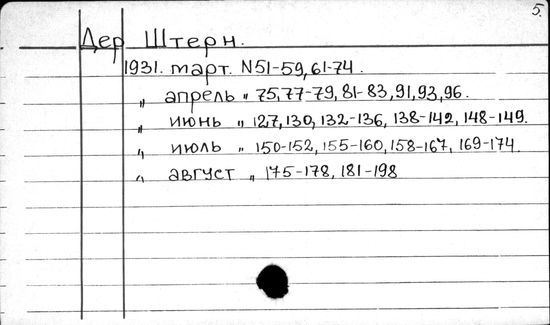 5.
Дер Штерн.
1931. март. N51-59, 61-74.
„ апрель „ 75, 77-79, 81-83, 91, 93, 96.
„ июнь „ 127, 130, 132-136, 138-142, 148-149.
„ июль „ 150-152, 155-160, 158-167, 169-174.
„ август „ 175-178, 181-198